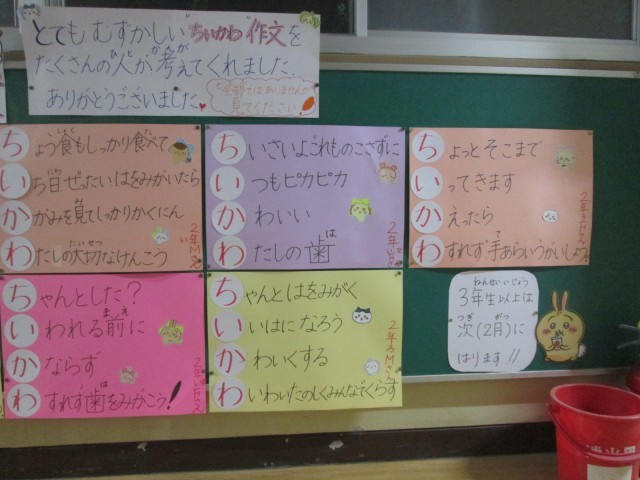 とてもむずかしい"ちいかわ"作文を
たくさんの人が考えてくれました。
ありがとうございました。
全部ではありませんが
見てください!
ちょう食もしっかり食べて
いち日ぜったいはをみがいたら
かがみを見てしっかりかくにん
わたしの大切なけんこう
たいせつ
ちいさいよごれものこさずに
いつもピカピカ
かわいい
わたしの歯
は
ちょっとそこまで
いってきます
かえったら
わすれず手あらいうがいしよう
て
ちゃんとした?
いわれる前に
まえ
かならず
わすれず歯をみがこう!
は
ちゃんとはをみがく
いいはになろう
かわいくする
わいわいたのしくみんなでくらす
ねんせいいじょう
3年生以上は
つぎ がつ
次(2月)に
はります!!